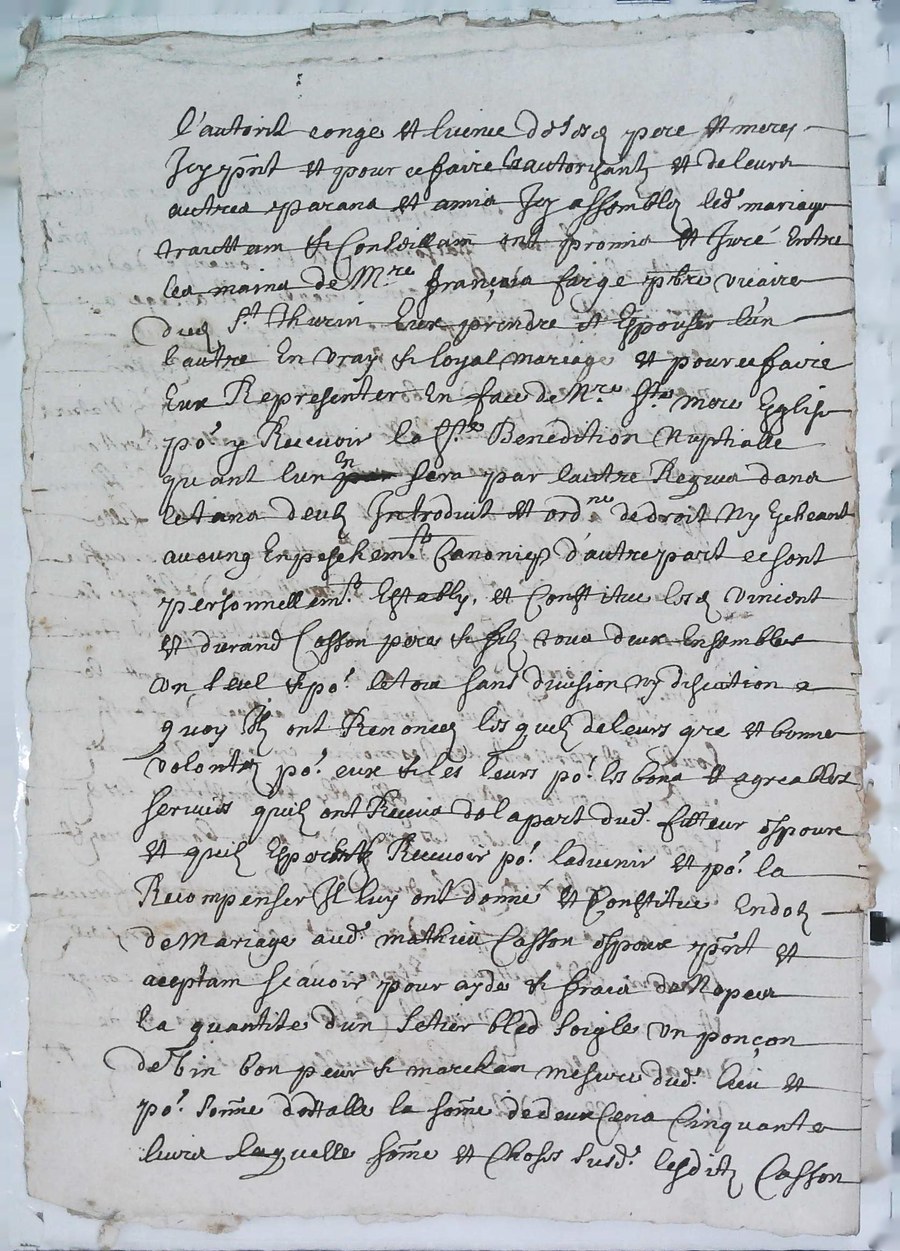 l'autorité conge et licence desdz pere et merez
Icy pnt et pour ce faire les autorizantz et de leurs
autres parans et amis Icy assemblez led mariage
traittam & Conseillam ont promis et Juré Entre
les mains de Mre françois farge pbre vicaire
dud St thurin Eux prendre et Espouser l'un
l'autre En vray & loyal mariage et pour ce faire
Eux Representer En face de Nre Ste mere Eglise
por y Recevoir la Ste Benedition Nuptialle
quant l'un En sera par l'autre Requis dans
le tans deub Introduit et ordne de droit Ny Escheant
aucung Enpeschemts Canonicqz d'autre part ce sont
personnellemt Establys, et Constitue lesd Vincent
et durand Casson pere & filz tous deux Ensembles
un seul & por le tou sans division ny discution a
quoy Ilz ont Renoncez lesquelz de leurs gre et bonne
volontez por eux & les leurs por les bons et agreables
services quilz ont Receus de la part dud futteur espoux
et quilz Esperent Recevoir por ladvenir et por la
Recompenser Il luy ont donné et Constitue En dot
de Mariage aud mathieu Casson espoux pnt et
aceptam scavoir pour ayde & frais de Nopces
la quantite dun setier bled soigle un ponçon
de Vin bon peur & marchan mesure dud lieu et
por some dotalle la some de deux Cens Cinquante
livres laquelle some et choses susd lesditz Casson